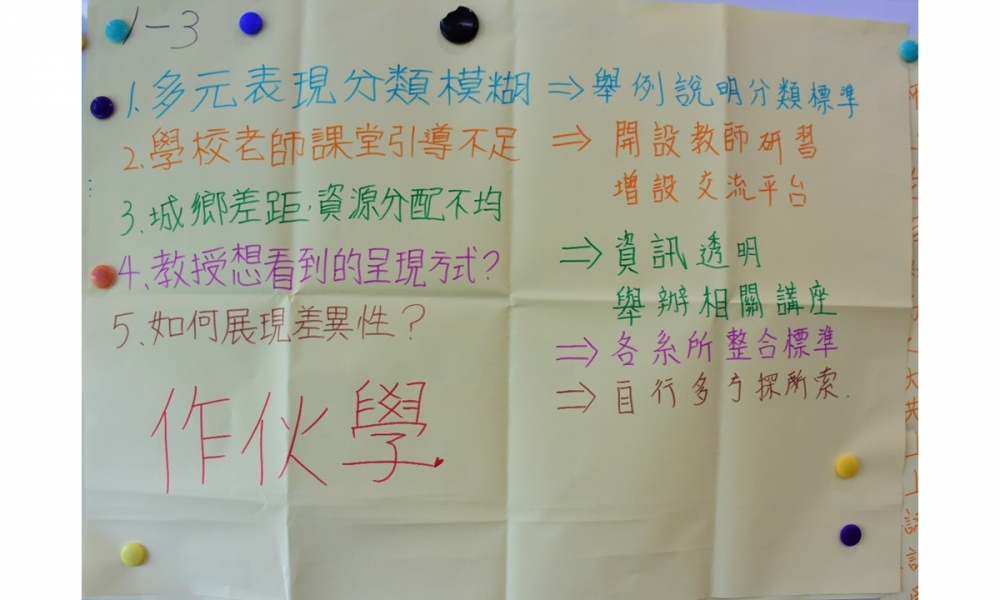 1-3
1. 多元表現分類模糊 ⇒ 舉例說明分類標準
2. 學校老師課堂引導不足 ⇒ 開設教師研習
增設交流平台
3. 城鄉差距,資源分配不均 ⇒ 資訊透明
舉辦相關講座
4. 教授想看到的呈現方式? ⇒ 各系所整合標準
5. 如何展現差異性? ⇒ 自行多ㄎ探所索.
作伙學